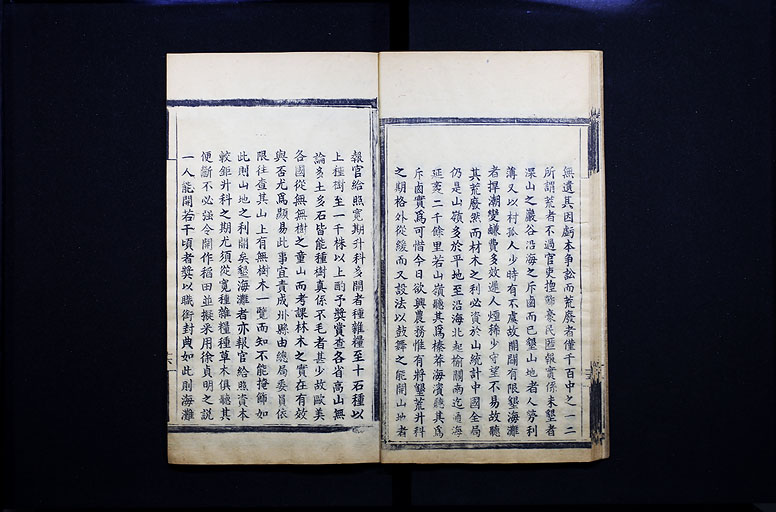 無遺其因虧本爭訟而荒廢者僅千百中之一二
所謂荒者不過官吏捏飾豪民匿報實係未墾者
深山之巖谷沿海之斥鹵而已墾山地者人勞利
薄又以村孤人少時有不虞故開闢有限墾海灘
者捍潮變鹻費多效遲人煙稀少守望不易故聽
其荒廢然而材木之利必資於山統計中國全局
仍是山嶺多於平地至沿海北起榆關南迄海
延袤二千餘里若山嶺聽其為榛莽海濱聽其爲
斥鹵實爲可惜今日欲興農務惟有將墾荒升科
之期格外從緩而又設法以鼓舞之能開山地者
報官給照寬期升科多開者種雜糧至十石種以
上種樹至一千株以上酌予獎賞查各省高山無
論多土多石皆能種樹真係不毛者甚少故歐美
各國從無無樹之童山而考課林木之實在有效
與否尤爲顯易此事宜責成州縣由總局委員依
限往查其山上有無樹木一覽而知不能掩飾如
此則山地之利闢矣墾海灘者亦報官給照資本
較鉅升科之期尤須從寬種雜糧種草木俱聽其
便斷不必強令開作稻田並擬采用徐貞明之說
一人能開若干頃者獎以職銜封典如此則海灘